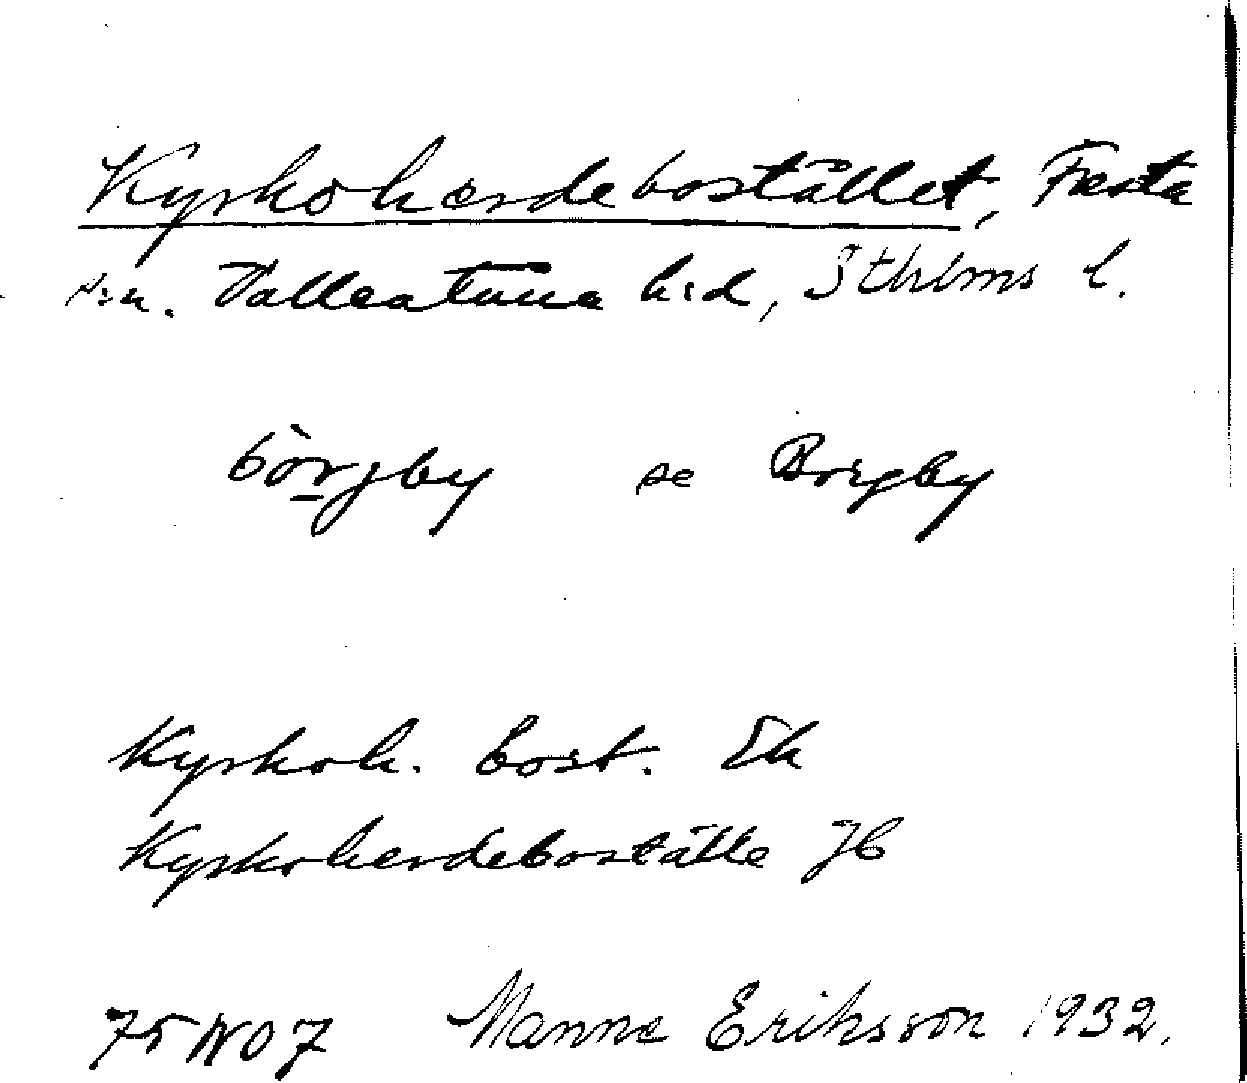 Kyrkoherdebostället, Fresta
sn. Vallentuna hrd, Sthlms l.
bòrjby se Borgby
Kyrkoh. bost. Ek
Kyrkoherdeboställe JB
75 NO 7 Manne Eriksson 1932.